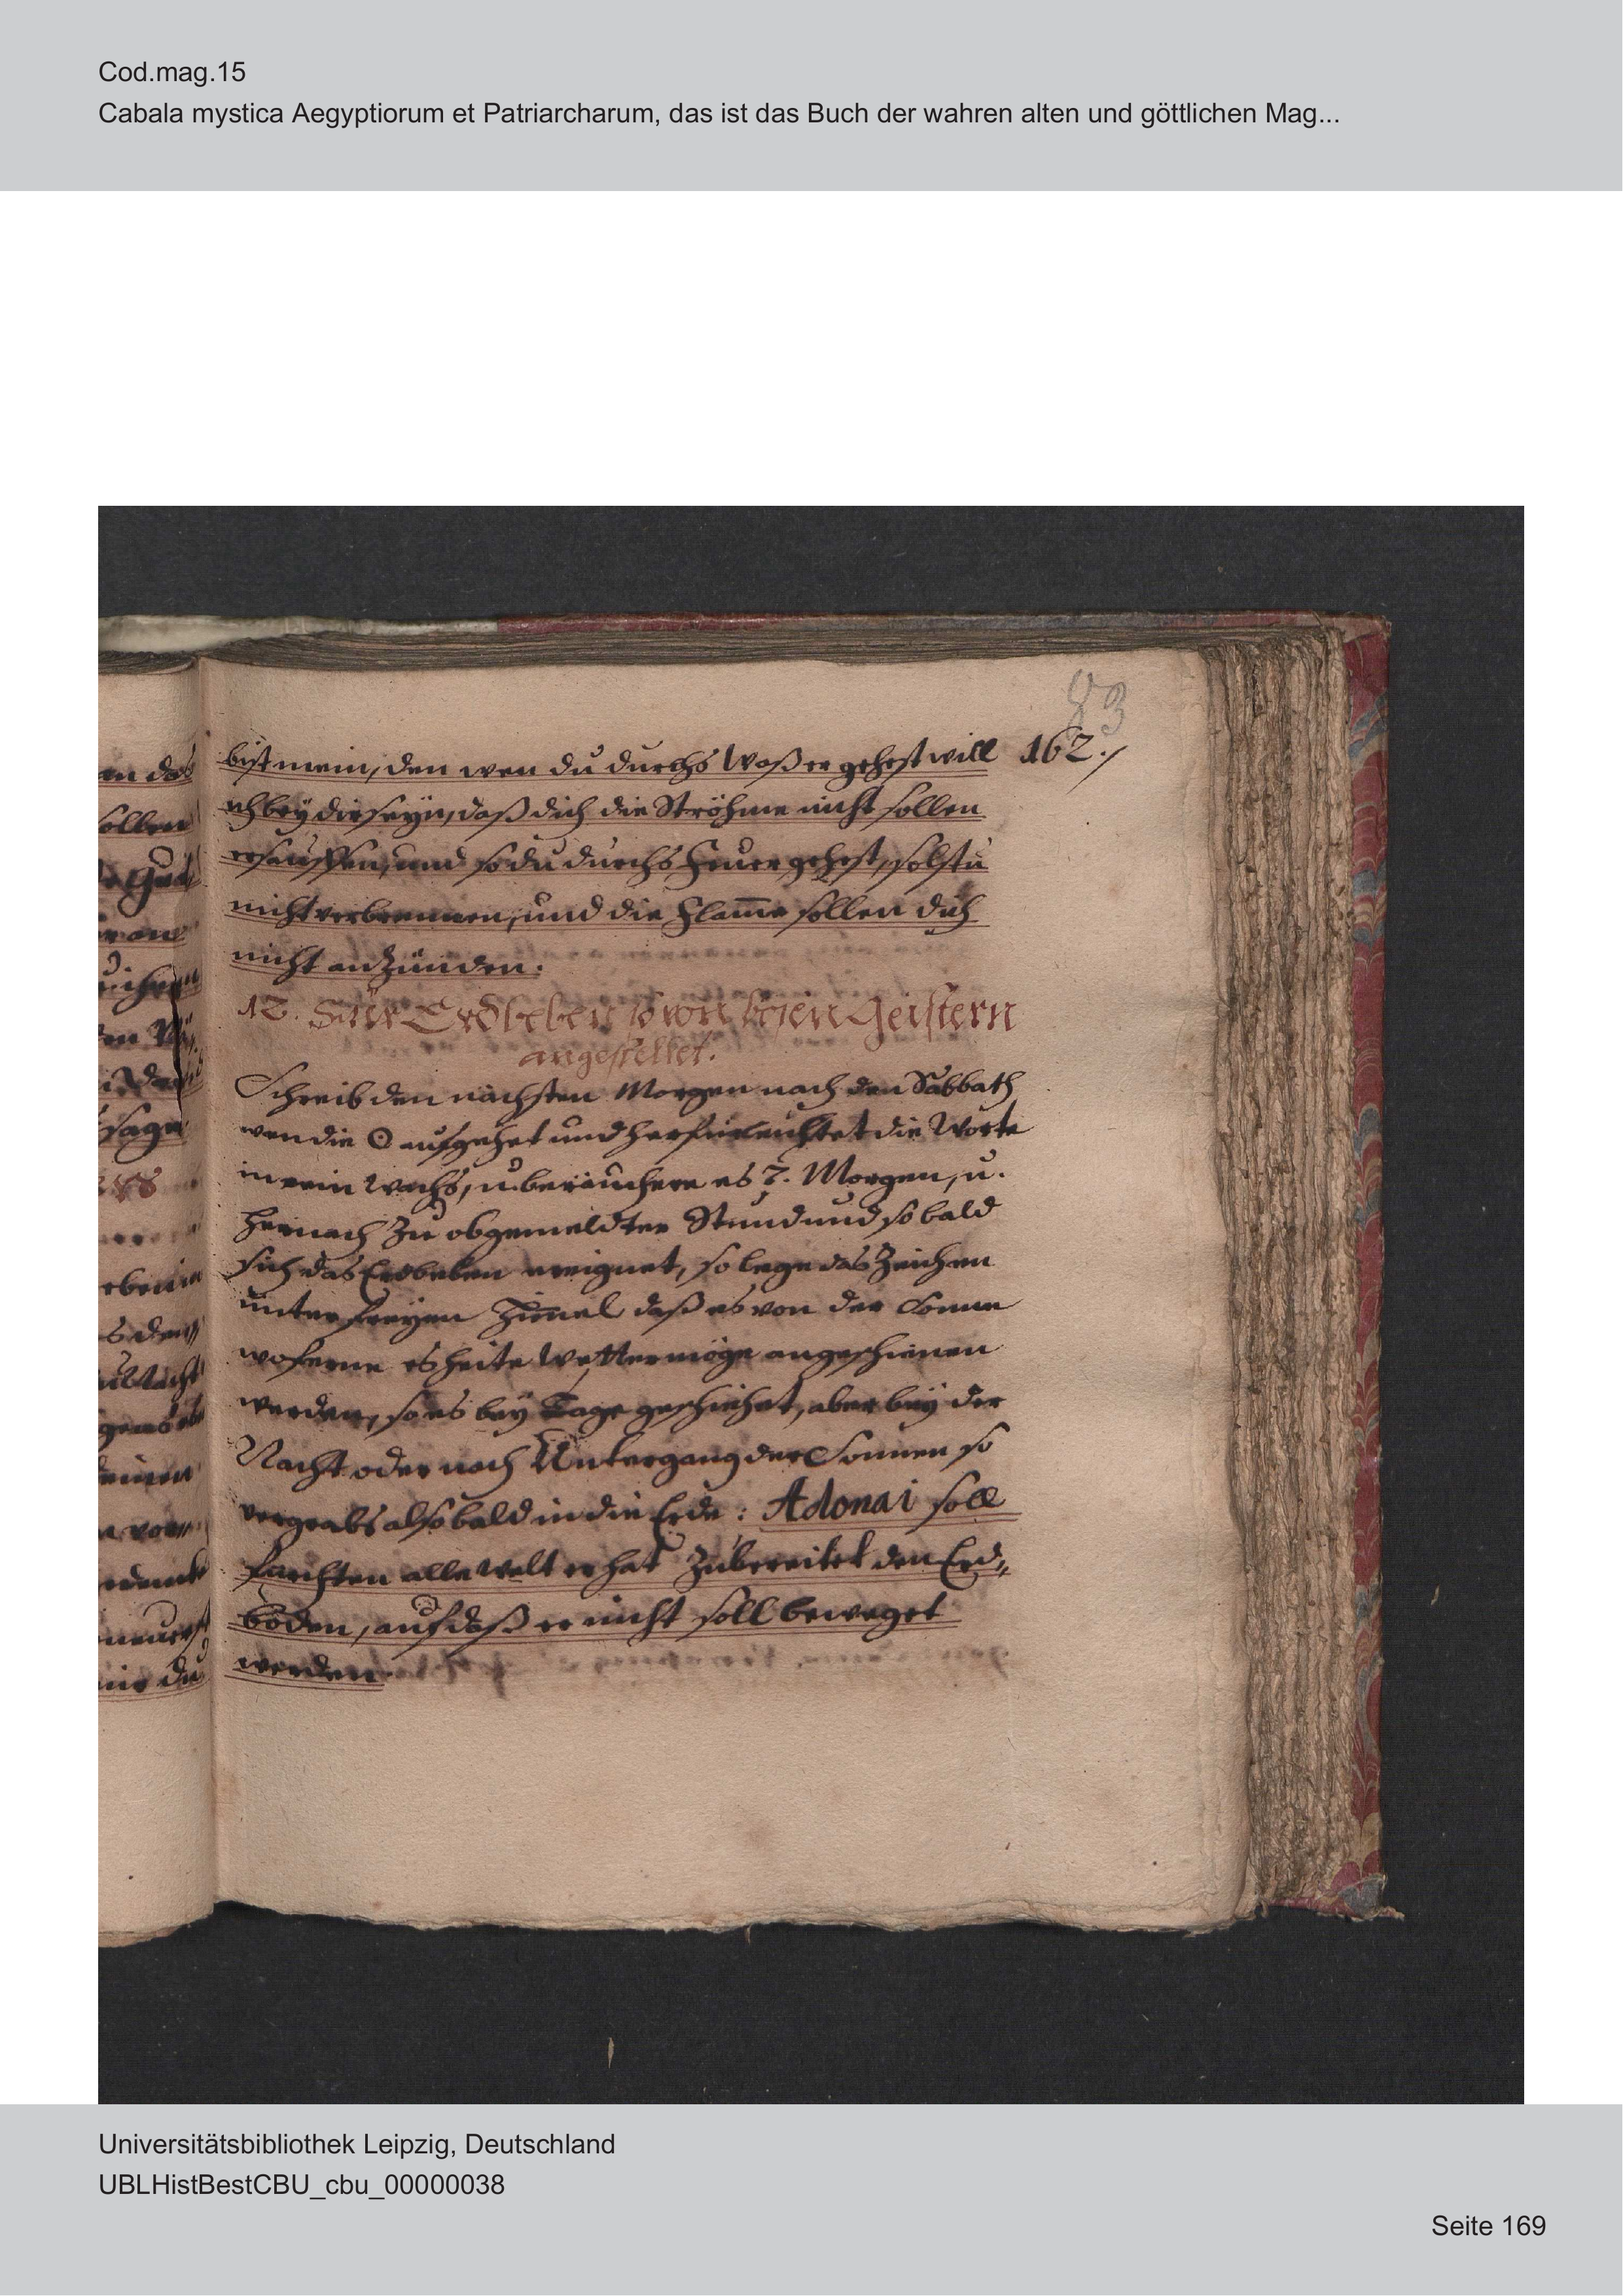 Cod.mag.15
Cabala mystica Aegyptiorum et Patriarcharum, das ist das Buch der wahren alten und göttlichen Mag...
83
bist mein, den wen du durchs Waßer gehest will 162./
ich bey dir seyn, daß dich die Ströhme nicht sollen
ersäuffen, und so du durchs Feuer gehest, solstu
nicht verbrennen, und die Flam̄e sollen dich
nicht anzünden.
12. Für Erdbeben so von bösen Geistern
angestellet.
Schreib den nächsten Morgen nach den Sabbath
wen die ☉ aufgehet und herfürleuchtet die Worte
in rein Wachs, u. beräuchere es 7. Morgen, u.
hernach zu obgemeldter Stund und so bald
sich das Erdbeben ereignet, so lege das Zeichen
unter freyen Him̄el daß es von der Sonne
woferne es heite Wetter möge angeschienen
werden, so es bey Tage geschiehet, aber bey der
Nacht oder nach Untergang der Sonnen so
vergrabs alsobald in die Erde: Adonai soll
förchten alle Welt er hat zubereitet den Erd„
boden, auf daß er nicht soll beweget
werden.
Universitätsbibliothek Leipzig, Deutschland
UBLHistBestCBU_cbu_00000038
Seite 169